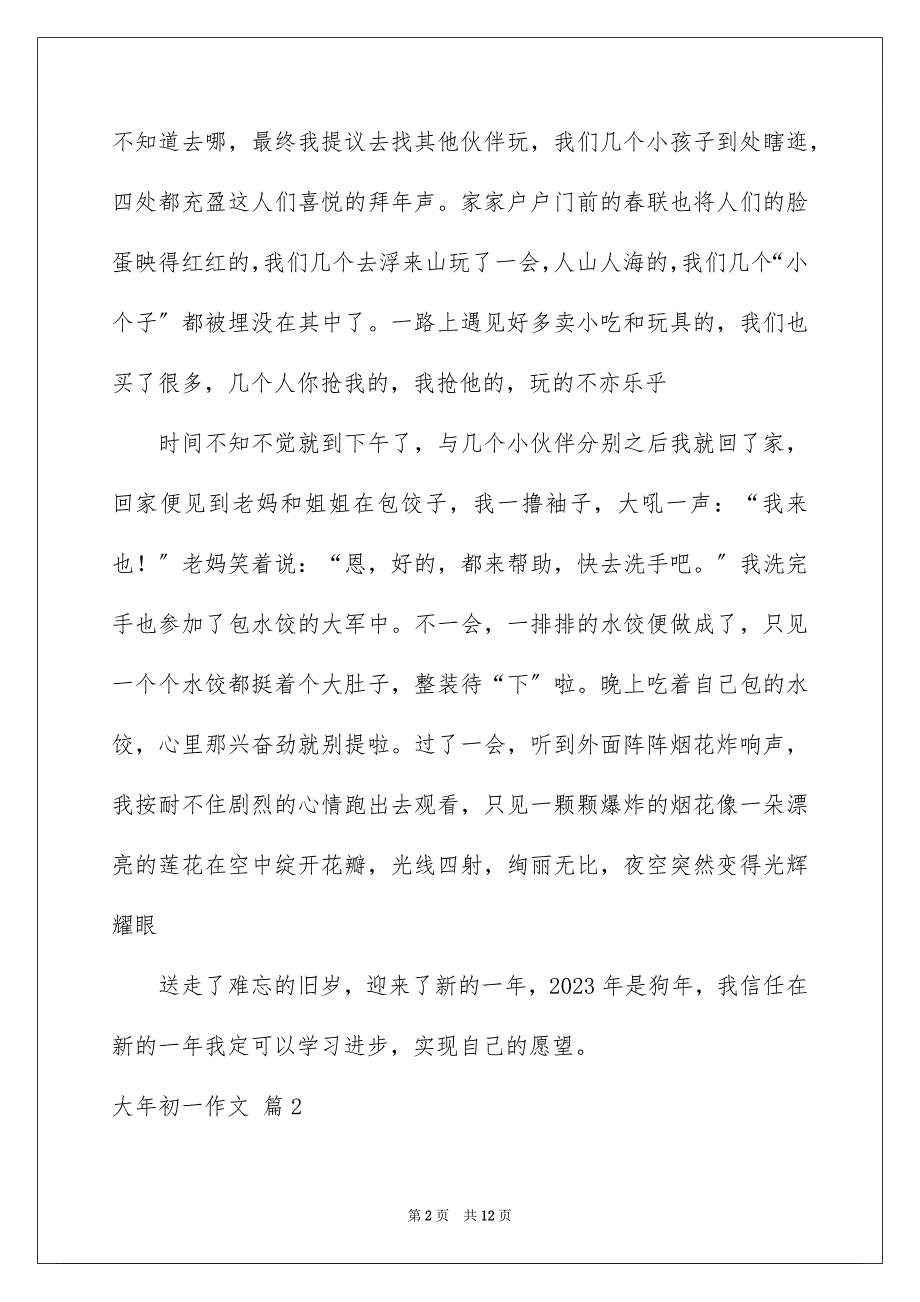 不知道去哪，最终我提议去找其他伙伴玩，我们几个小孩子到处瞎逛，
四处都充盈这人们喜悦的拜年声。家家户户门前的春联也将人们的脸
蛋映得红红的，我们几个去浮来山玩了一会，人山人海的，我们几个“小
个子〞都被埋没在其中了。一路上遇见好多卖小吃和玩具的，我们也
买了很多，几个人你抢我的，我抢他的，玩的不亦乐乎
时间不知不觉就到下午了，与几个小伙伴分别之后我就回了家，
回家便见到老妈和姐姐在包饺子，我一撸袖子，大吼一声：“我来
也！〞老妈笑着说：“恩，好的，都来帮助，快去洗手吧。〞我洗完
手也参加了包水饺的大军中。不一会，一排排的水饺便做成了，只见
一个个水饺都挺着个大肚子，整装待“下〞啦。晚上吃着自己包的水
饺，心里那兴奋劲就别提啦。过了一会，听到外面阵阵烟花炸响声，
我按耐不住剧烈的心情跑出去观看，只见一颗颗爆炸的烟花像一朵漂
亮的莲花在空中绽开花瓣，光线四射，绚丽无比，夜空突然变得光辉
耀眼
送走了难忘的旧岁，迎来了新的一年，2023 年是狗年，我信任在
新的一年我定可以学习进步，实现自己的愿望。
大年初一作文 篇 2
第 2 页 共 12 页